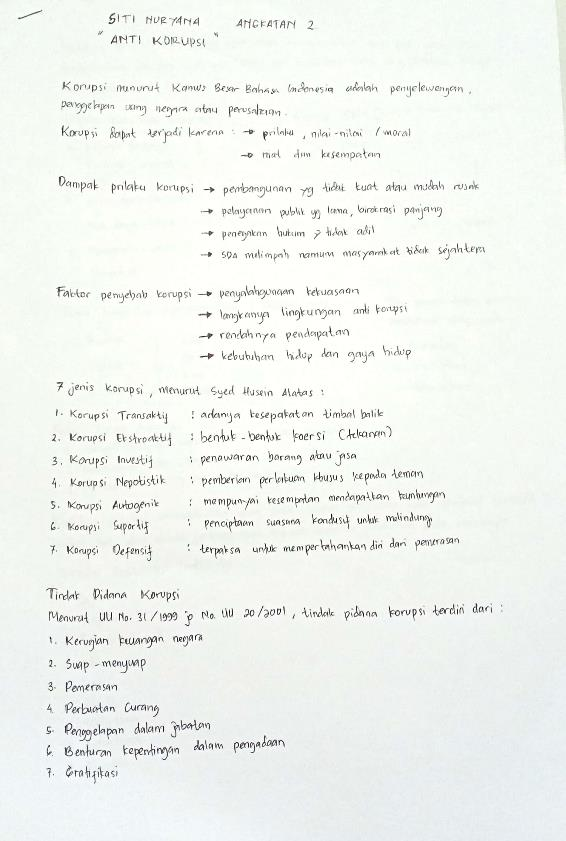 SITI NURYANA ANGKATAN 2
"ANTI KORUPSI"
Korupsi menurut Kamus Besar Bahasa Indonesia adalah penyelewengan,
penggelapan uang negara atau perusahaan.
Korupsi dapat terjadi karena : → prilaku, nilai-nilai / moral
→ niat dan kesempatan
Dampak prilaku korupsi → pembangunan yg tidak kuat atau mudah rusak
→ pelayanan publik yg lama, birokrasi panjang
→ penegakan hukum yg tidak adil
→ SDA melimpah namun masyarakat tidak sejahtera
Faktor penyebab korupsi → penyalahgunaan kekuasaan
→ langkanya lingkungan anti korupsi
→ rendahnya pendapatan
→ kebutuhan hidup dan gaya hidup
7 jenis korupsi, menurut Syed Husein Alatas :
1. Korupsi Transaktif : adanya kesepakatan timbal balik
2. Korupsi Ekstroaktif : bentuk-bentuk koersi (tekanan)
3. Korupsi Investif : penawaran barang atau jasa
4. Korupsi Nepotistik : pemberian perlakuan khusus kepada teman
5. Korupsi Autogenik : mempunyai kesempatan mendapatkan keuntungan
6. Korupsi Suportif : penciptaan suasana kondusif untuk melindungi
7. Korupsi Defensif : terpaksa untuk mempertahankan diri dari pemerasan
Tindak Pidana Korupsi
Menurut UU No. 31/1999 jo No. UU 20/2001, tindak pidana korupsi terdiri dari :
1. Kerugian keuangan negara
2. Suap-menyuap
3. Pemerasan
4. Perbuatan Curang
5. Penggelapan dalam jabatan
6. Benturan kepentingan dalam pengadaan
7. Gratifikasi